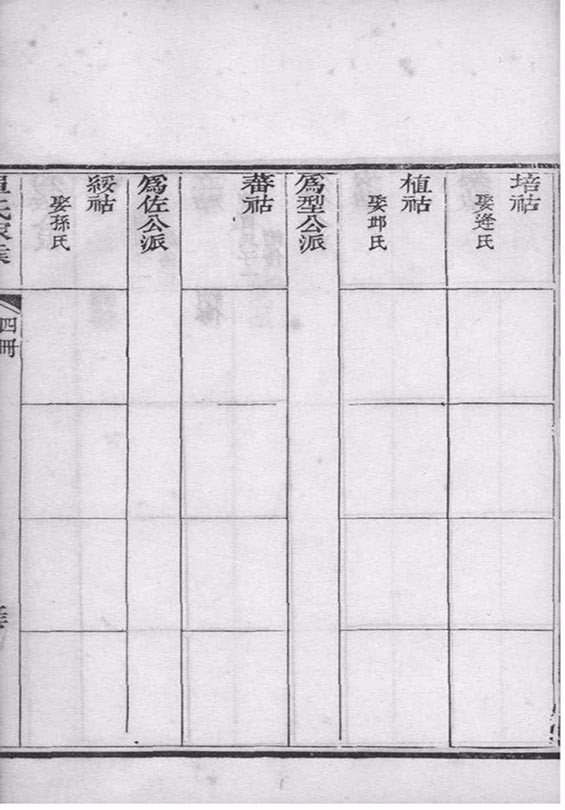 培祜
娶逄氏
植祜
娶邱氏
為型公派
蕃祜
為佐公派
綏祜
娶孫氏
氏家乘
四冊